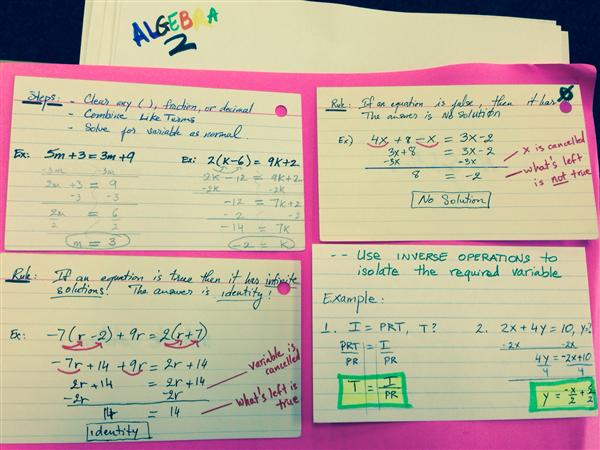 ALGEBRA
2
Steps: - Clear any ( ), fraction, or decimal
- Combine Like Terms
- Solve for variable as normal.
Ex: 5m + 3 = 3m + 9
-3m -3m
2m + 3 = 9
-3 -3
2m = 6
2 2
m = 3
Ex: 2(k-6) = 9k+2
2k - 12 = 9k+2
-2k -2k
-12 = 7k+2
-2 -2
-14 = 7k
-2 = k
Rule: If an equation is false, then it has
The answer is No Solution
Ex) 4x + 8 - x = 3x - 2
3x + 8 = 3x - 2
-3x -3x
8 = -2
x is cancelled
what's left
is not true
No Solution
Rule: If an equation is true then it has infinite
solutions! The answer is identity!
Ex: -7(r-2) + 9r = 2(r+7)
-7r + 14 + 9r = 2r + 14
2r + 14 = 2r + 14
-2r -2r
14 = 14
variable is
cancelled
what's left is
true
identity
-- Use INVERSE OPERATIONS to
isolate the required variable
Example:
1. I = PRT, T?
PRT = I
PR PR
T = I
PR
2. 2x + 4y = 10, y?
-2x -2x
4y = -2x+10
4 4
y = -x + 5
2 2